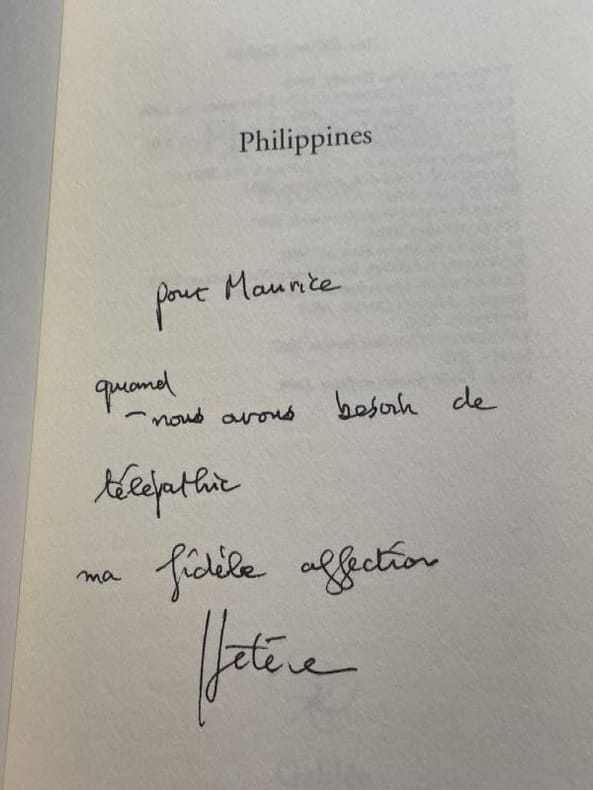 Philippines
pour Maurice
quand
nous avons besoin de
télépathie
ma fidèle affection
Hélène